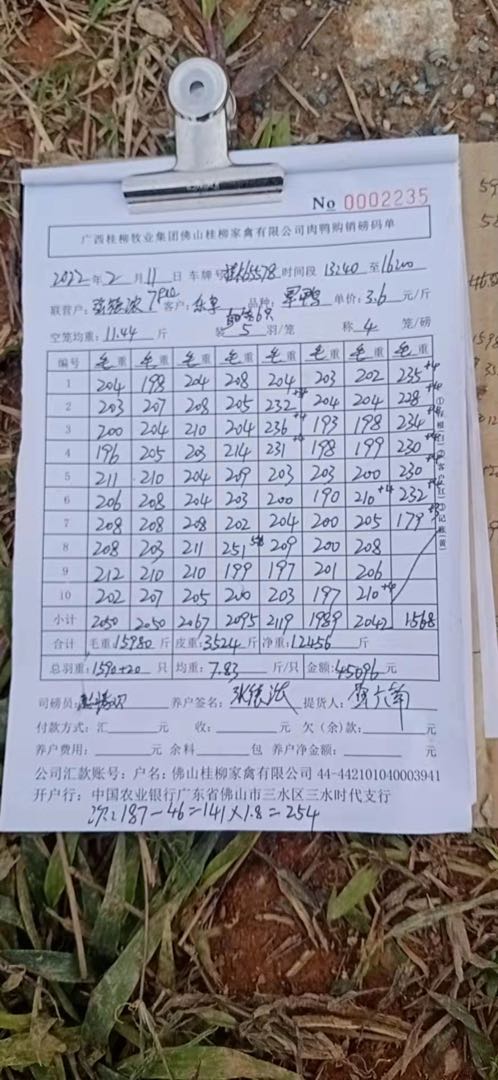 No 0002235
广西桂柳牧业集团佛山桂柳家禽有限公司肉鸭购销磅码单
2022年2月11日 车牌号 65578 时间段 13:40 至 16:00
联营户: 客户: 品种: 单价: 3.6 元/斤
空笼均重: 11.44 斤 装 5 羽/笼 称 4 笼/磅
编号 毛重 毛重 毛重 毛重 毛重 毛重 毛重 毛重
1 204 198 204 208 204 203 202 235+4
2 203 207 208 205 232+4 204 204 228+4
3 200 204 210 204 236+4 193 198 234+4
4 196 205 203 214 231+4 198 199 230+4
5 211 210 204 209 203 203 200 230+4
6 206 208 204 203 200 190 210+4 232+4
7 208 208 208 202 204 200 205 179
8 208 203 211 251 209 200 208
9 212 210 210 199 197 201 206
10 202 207 205 200 203 197 210+4
小计 2050 2050 2067 2095 2119 1989 2042 1568
合计 毛重: 15980 斤 皮重: 3524 斤 净重: 12456 斤
总羽重: 1590+20 只 均重: 7.83 斤/只 金额: 45096 元
司磅员: 养户签名: 提货人:
付款方式: 汇 元 收: 元 欠(余)款: 元
养户费用: 元 余料 包 养户净金额: 元
公司汇款账号: 户名: 佛山桂柳家禽有限公司 44-442101040003941
开户行: 中国农业银行广东省佛山市三水区三水时代支行
次: 187-46=141×1.8=254
①存根(白)②客户(红)③记账(黄)